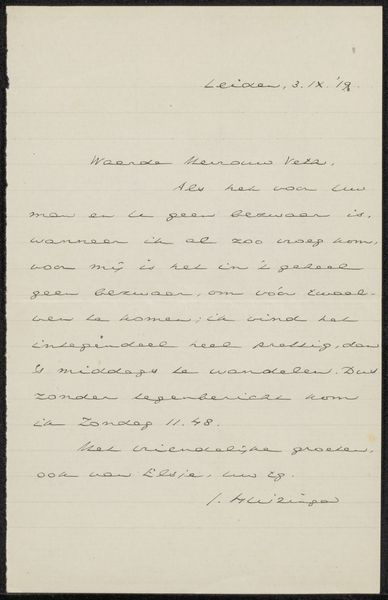 Leiden, 3. IX. '19.
Waarde Mevrouw Veth,
Als het voor Uw
man en U geen bezwaar is,
wanneer ik al zoo vroeg kom,
voor mij is het in 't geheel
geen bezwaar, om vóór twaal-
ven te komen; ik vind het
integendeel heel prettig, dan
's middags te wandelen. Dus
zonder tegenbericht kom
ik Zondag 11.48.
Met vriendelijke groeten,
ook van Elsje, Uw Dg.
J. Huizinga